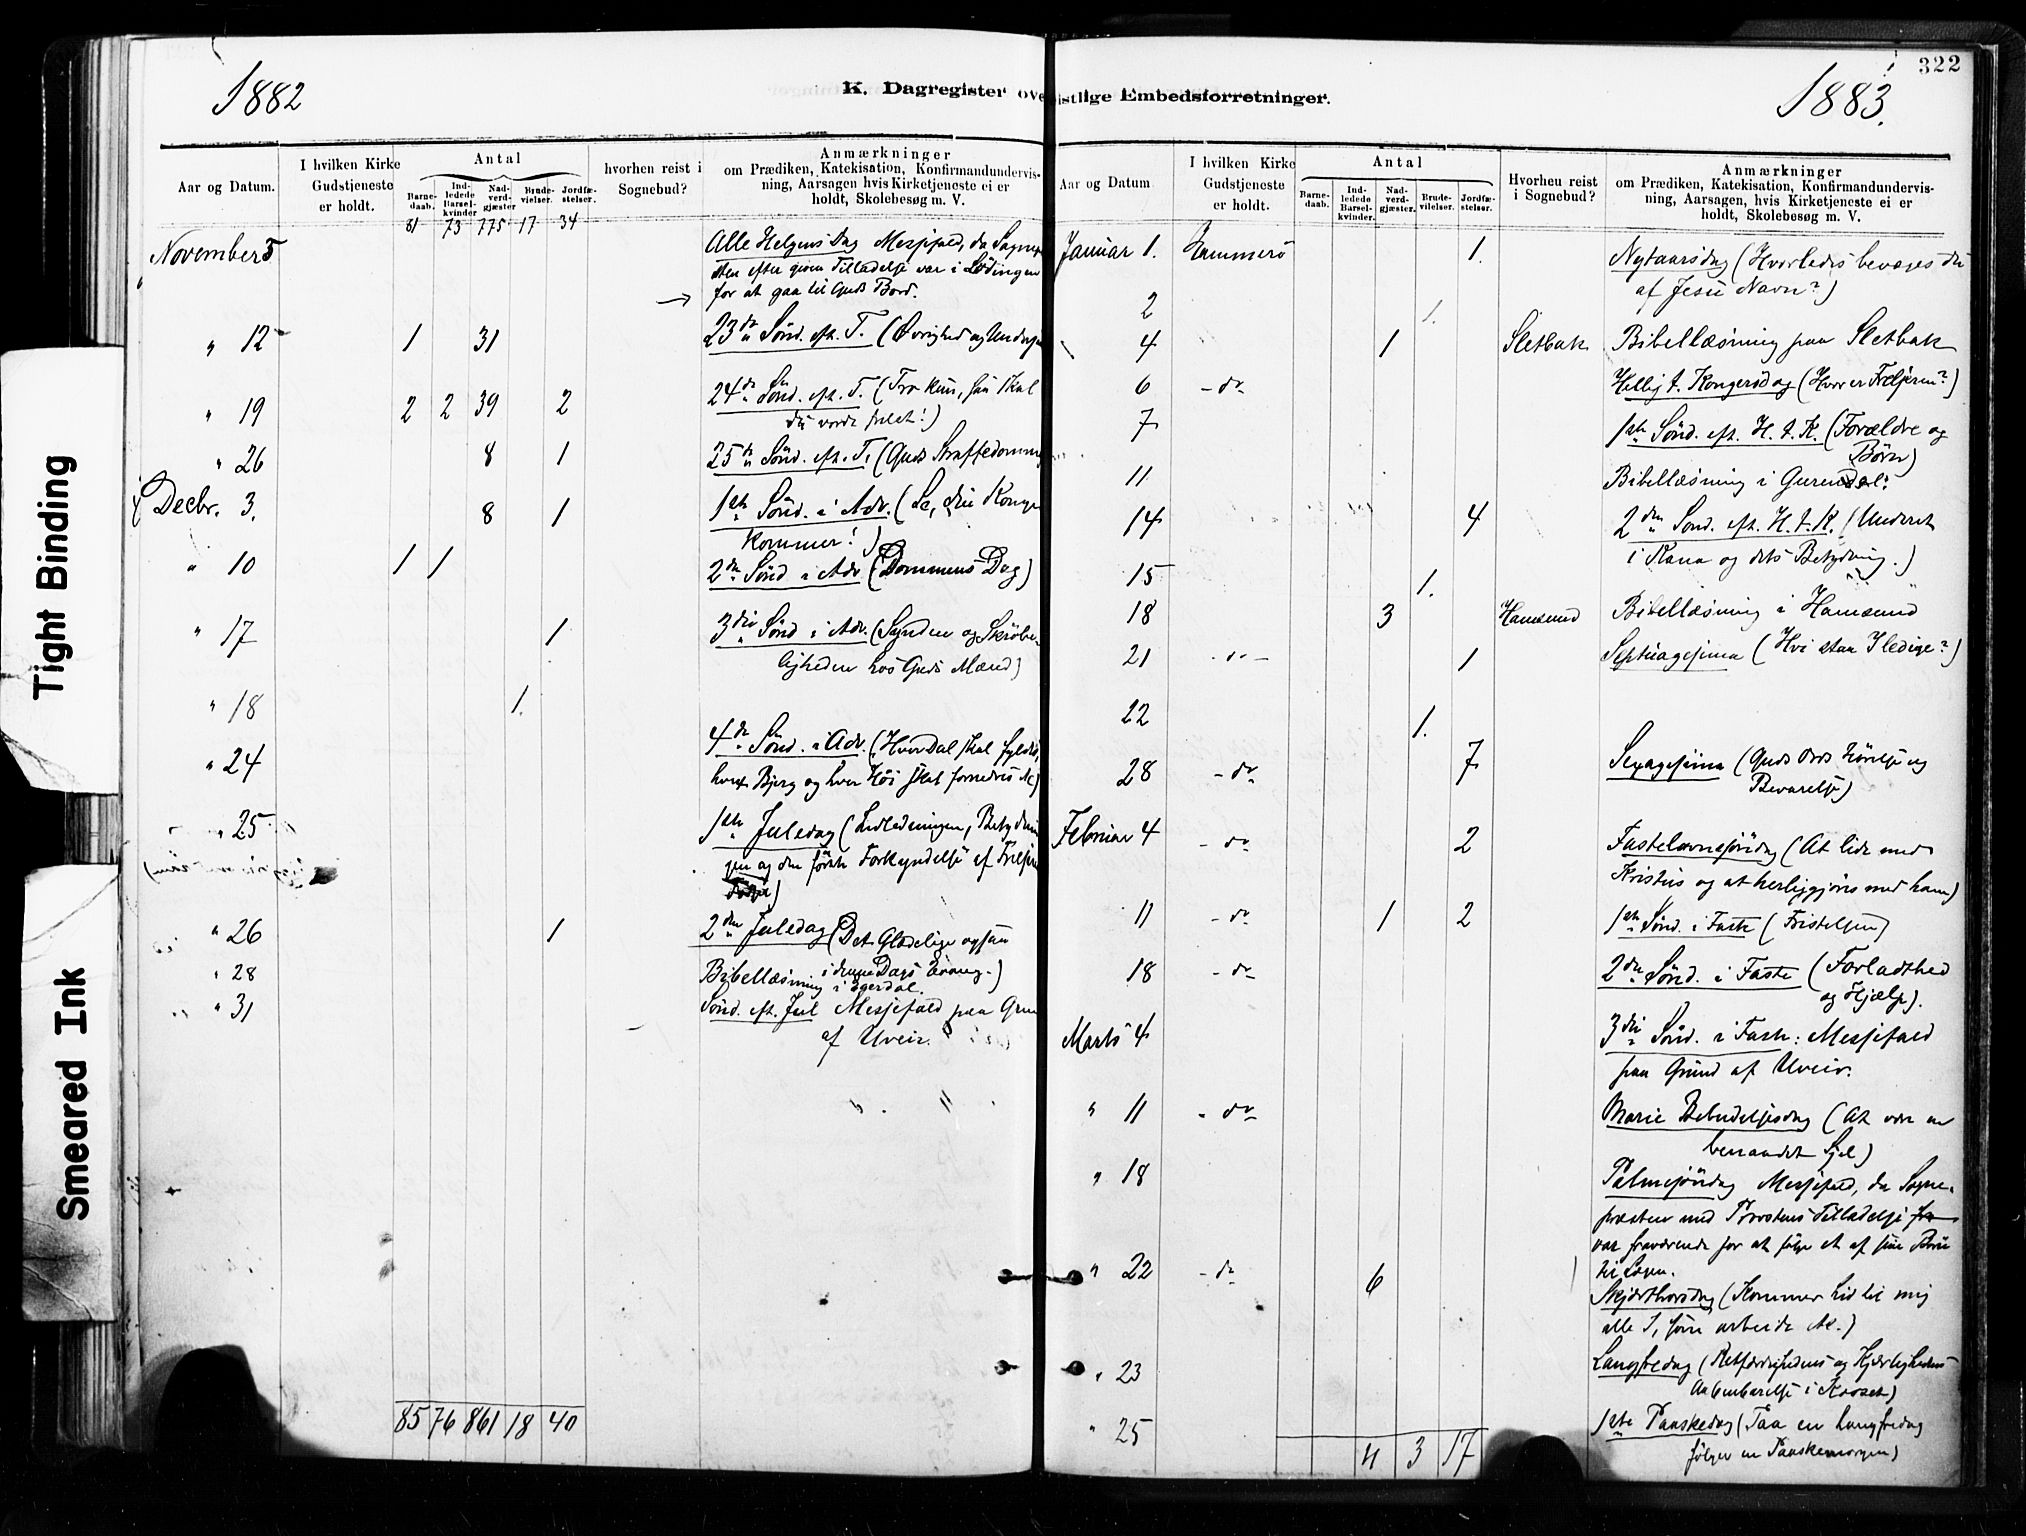 322
1882
K. Dagregister ove
istlige Embedsforretninger.
1883.
Tight Binding
Smeared Ink
Aar og Datum.
I hvilken Kirke
Gudstjeneste
er holdt.
Antal
Barne-
daab.
Ind-
ledede
Barsel-
kvinder
Nad-
verd-
gjæster
Brude-
vielser.
Jordfæ-
stelser.
hvorhen reist i
Sognebud?
Anmærkninger
om Prædiken, Katekisation, Konfirmandundervis-
ning, Aarsagen hvis Kirketjeneste ei er
holdt, Skolebesøg m. V.
81 73 775 17 34
November 5 Alle Helgens Dag Messefald, da Sogne
sten efter given Tilladelse var i Lødingen
for at gaa til Guds Bord.
" 12 1 31 23de Sönd. eft. T. (Øvrighed og
" 19 2 2 39 2 24de Sönd. eft. T. (Tro kun, saa skal
du vorde frelst!)
" 26 8 1 25de Sönd. eft. T. (Guds Straffedomme
Decbr. 3. 8 1 1ste Sönd. i Adv. (Se, din Konge
kommer!)
" 10 1 1 2den Sönd i Adv (Dommens Dag)
" 17 1 3die Sönd i Adv. (Synden og Skröbe-
ligheden hos Guds Mænd)
" 18 1.
" 24 4de Sönd. i Adv. (Hver Dal skal fyldes,
hvert Bjerg og hver Höi skal fornedres &c)
" 25 1ste Juledag (Indledningen, Betydnin
gen og den første Forkyndelse af Frelsere
" 26 1 2den Juledag (Det Glædelige ogsaa
i denne Dags Evang.)
" 28 Bibellæsning i
" 31 Sönd. eft. Jul Messefald paa Grun
af Uveir.
85 76 861 18 40
Aar og Datum
I hvilken Kirke
Gudstjeneste
er holdt.
Antal
Barne-
daab.
Ind-
ledede
Barsel-
kvinder.
Nad-
verd-
gjæster.
Brude-
vielser.
Jordfæ-
stelser.
Hvorheu reist
i Sognebud?
Anmærkninger
om Prædiken, Katekisation, Konfirmandundervis-
ning, Aarsagen, hvis Kirketjeneste ei er
holdt, Skolebesøg m. V.
Januar 1. Hammerö 1. Nytaarsdag (Hvorledes bevares du
af Jesu Navn?)
2 1.
4 1 Sletbak Bibellæsning paa Sletbak
6 - do Hellig t. Kongersdag (Hvor er Frelseren?)
7 1ste Sönd. eft. H. t. K. (Forældre og
Börn)
11 Bibellæsning i
14 4 2den Sönd. eft. H. t. K. (Underet
i Kana og dets Betydning.)
15 1.
18 3 Hamsund Bibellæsning i Hamsund
21 - do - 1 Septuagesima (Hvi staa I ledige?)
22 1.
28 - do 7 Sexagesima (Guds Ords Hörelse og
Bevarelse)
Februar 4 - do 2 Fastelavnssöndag (At lide med
Kristus og at herliggjöres med ham)
11 - do 1 2 1ste Sönd. i Faste (Fristelsen)
18 - do 2den Sönd. i Faste (Forladthed
og Hjælp).
Marts 4 3die Sönd. i Faste: Messefald
paa Grund af Uveir.
" 11 - do Marie Bebudelsesdag (At være en
benaadet Sjæl)
" 18 Palmesöndag Messefald, da Sogne-
præsten med Provstens Tilladelse
var fraværende for at følge et af sine Börn
til Lægen.
" 22 - do 6 Skjærthorsdag (Kommer hid til mig
alle I, som arbeide &c.)
" 23 Langfredag (Retfærdighedens og Kjærlighedens
Aabenbarelse i Korset)
" 25 1ste Paaskedag (Paa en Langfredag
følger en Paaskemorgen)
11 3 17